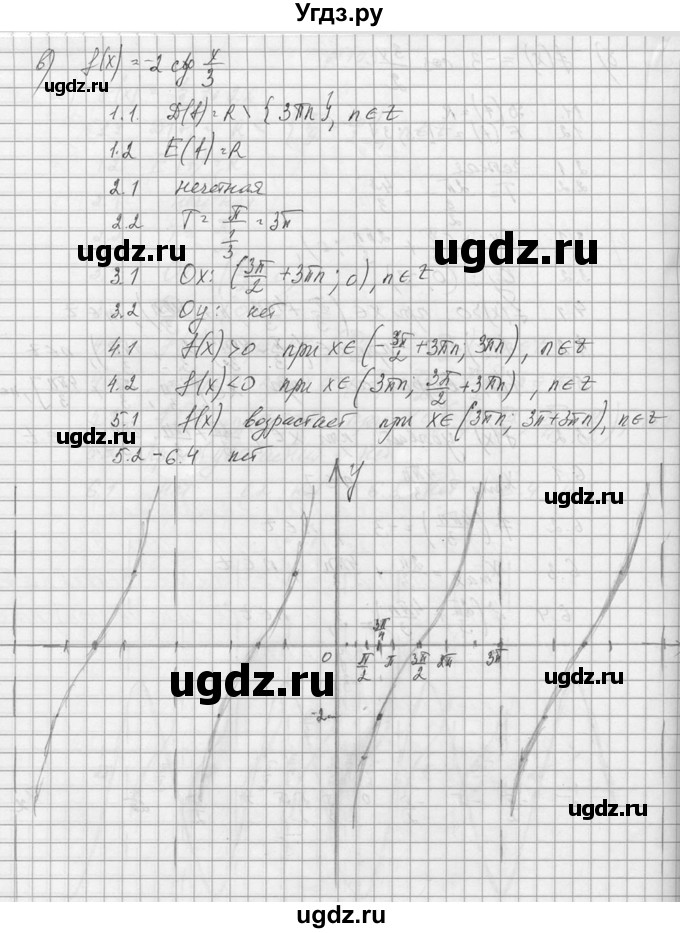 Угдз.ру
в) f(x) = -2 ctg x/3
1.1. D(f) = R \ {3πn}, n∈Z
ugdz.ru
1.2 E(f) = R
2.1 нечетная
2.2 T = π/(1/3) = 3π
ugdz.ru ugdz.ru
3.1 Ox: (3π/2 + 3πn; 0), n∈Z
3.2 Oy: нет
4.1 f(x) > 0 при x∈(-3π/2 + 3πn; 3πn), n∈Z
ugdz.ru
4.2 f(x) < 0 при x∈(3πn; 3π/2 + 3πn), n∈Z
5.1 f(x) возрастает при x∈(3πn; 3π+3πn), n∈Z
ugdz.ru
5.2 - 6.4 нет
y
ugdz.ru
3π/4
0 π/2 π 3π/2 2π 3π
ugdz.ru
ugdz.ru
-2
ugdz.ru
ugdz.ru